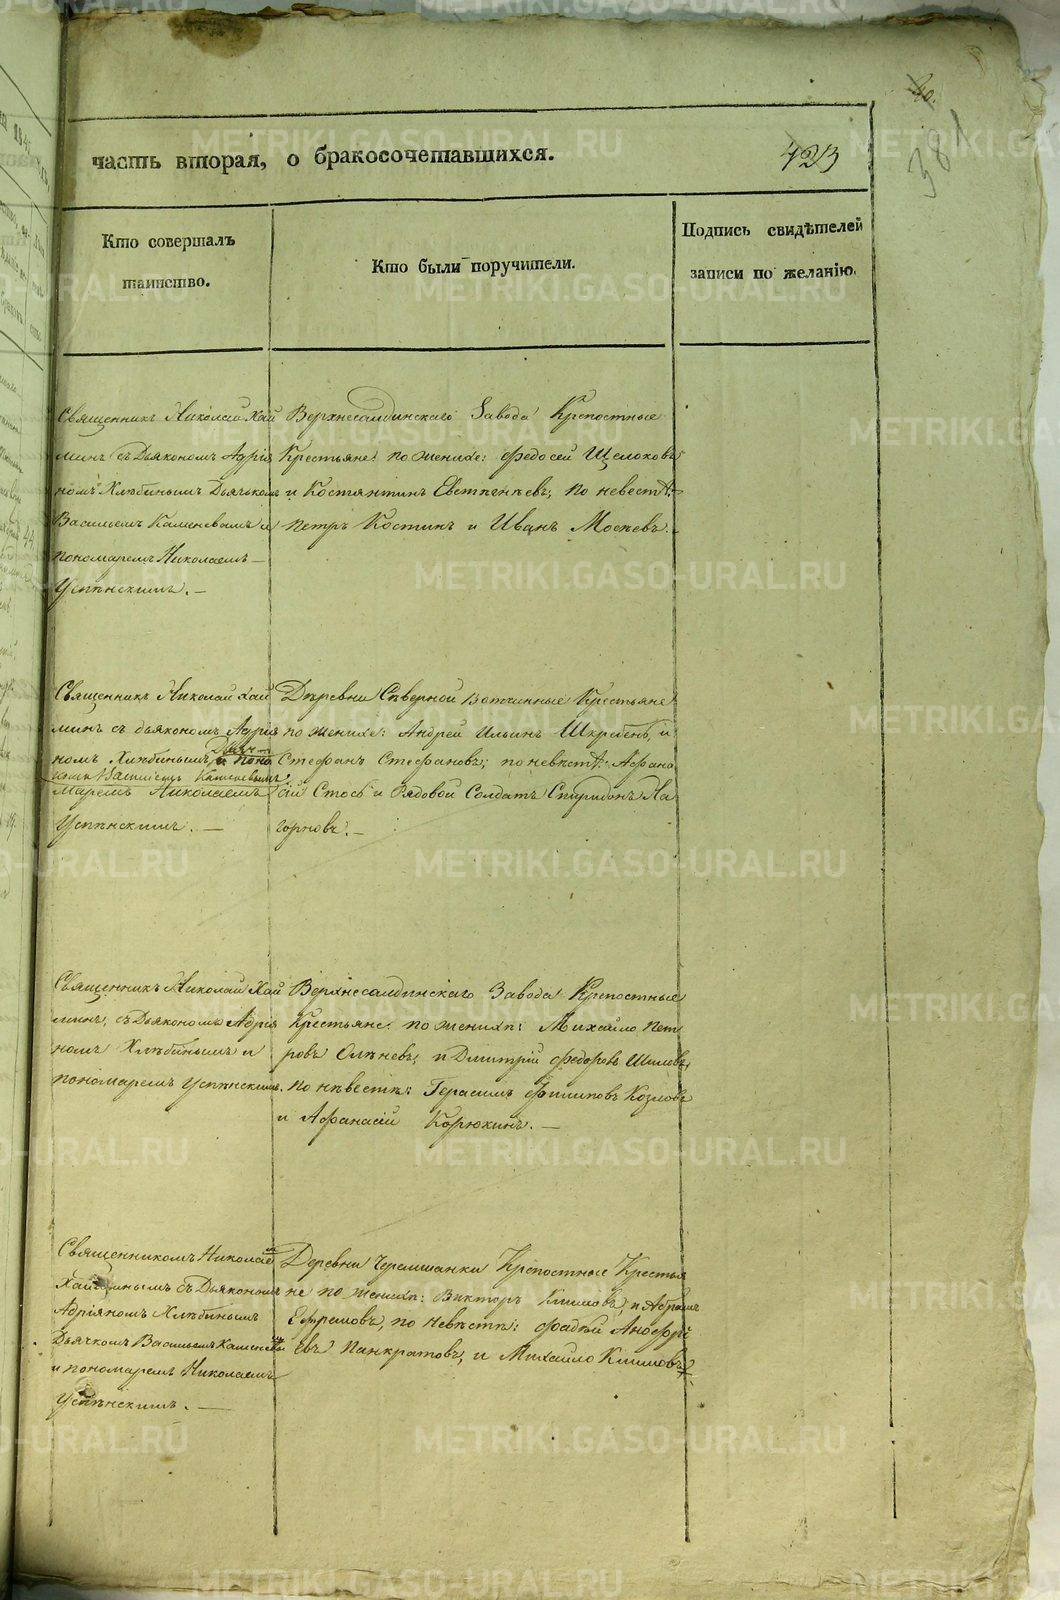 40.
381
часть вторая, о бракосочетавшихся.
423
Кто совершалъ
таинство.
Кто были поручители.
Подпись свидѣтелей
записи по желанію.
Священникъ Николай Хай
минъ съ Дьякономъ Адрія
номъ Хлѣбинымъ Дьячькомъ
Васильемъ Каменевымъ и
пономаремъ Николаемъ —
Успѣнскимъ. —
Верхнесалдинскаго Завода Крепостные
Крестьяне по женихе: Федосей Щелоковъ
и Костянтинъ Евстигнѣевъ; по невестѣ:
Петръ Костинъ и Иванъ Мосѣевъ. —
Священникъ Николай Хай
минъ съ дьякономъ Адрія
номъ Хлѣбинымъ, и поно
Василіемъ Каменевымъ
маремъ Николаемъ
Успѣнскимъ. —
Дѣревни Сѣверной Вотчинные Крестьяне
по женихе: Андрей Ильинъ и
Стефанъ Стефановъ; по невѣстѣ: Афана
сій и Рядовой Солдатъ Спиридонъ На
горновъ. —
Священникъ Николай Хай
минъ, съ Дьякономъ Адрія
номъ Хлѣбинымъ и
пономаремъ Успѣнскимъ.
Верхнесалдинскаго Завода Крепостные
Крестьяне по женихѣ: Михайло Пет
ровъ и Дмитрій Федоровъ Шиловъ,
по нѣвестѣ: Герасимъ Филиповъ Козловъ
и Афанасій Корюкинъ. —
Священникомъ Николаемъ
Хайминымъ съ Дьякономъ
Адріяномъ Хлѣбинымъ
Дьячкомъ Васильемъ Каменевымъ
и пономаремъ Николаемъ
Успѣнскимъ. —
Деревни Черемшанки Крепостные Крестья
не по женихѣ: Викторъ Климовъ, и Абрамъ
Ефремовъ, по невѣстѣ: Фадѣй Анофрі
евъ Панкратовъ, и Михайло Климовъ.
METRIKI.GASO-URAL.RU